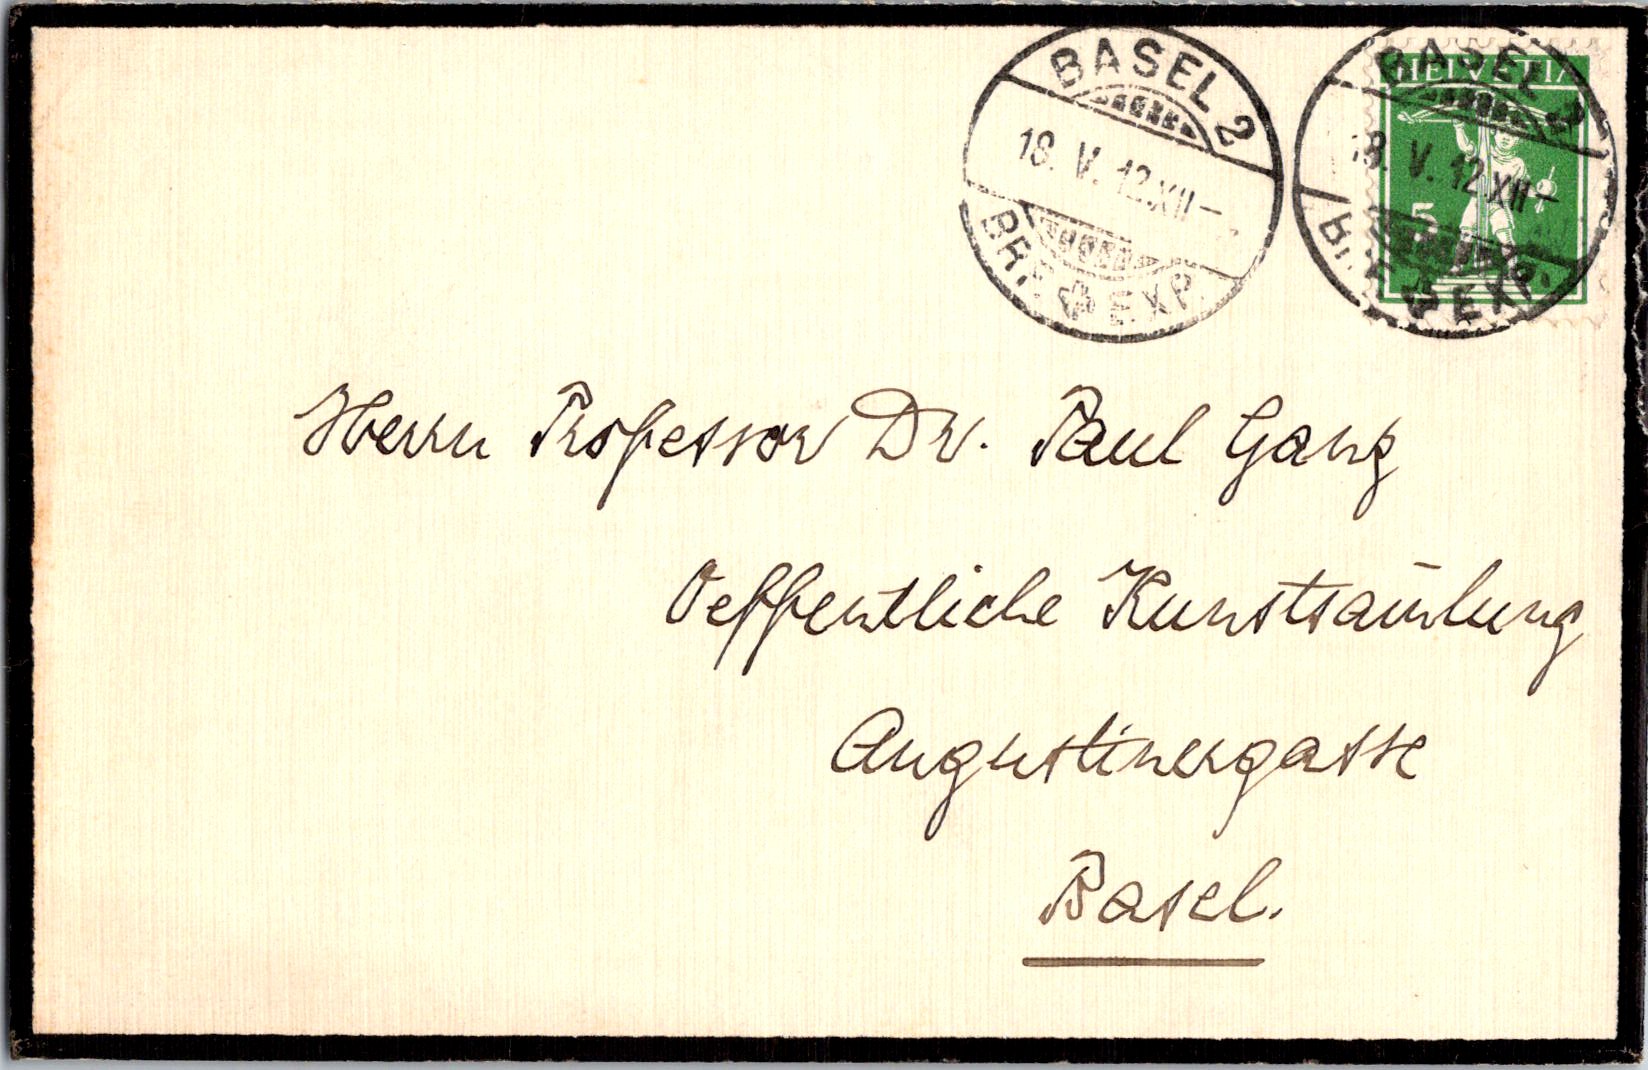 BASEL 2
18. V. 12.XII–
BRF. EXP.
BASEL 2
18. V. 12.XII–
BRF. EXP.
HELVETIA
5
Herrn Professor Dr. Paul Ganz
Oeffentliche Kunstsam̄lung
Augustinergasse
Basel.